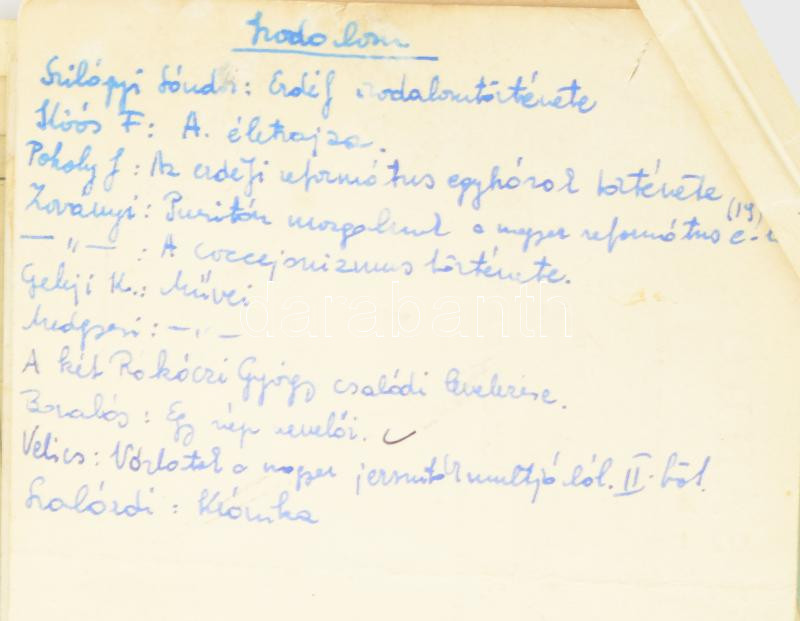 Irodalom
Szilágyi Sándor: Erdély irodalomtörténete
Koós F: A. életrajza.
Pokoly J: Az erdélyi református egyházak története (19)
Zoványi: Puritán mozgalmak a magyar református e-
— " — : A coccejanizmus története.
Geleji K.: Művei
Medgyesi: — " —
A két Rákóczi György családi levelezése.
Baralás: Egy nép nevelői.
Velics: Vázlatok a magyar jezsuiták multjából. II-ből.
Szalárdi: Krónika
darabanth